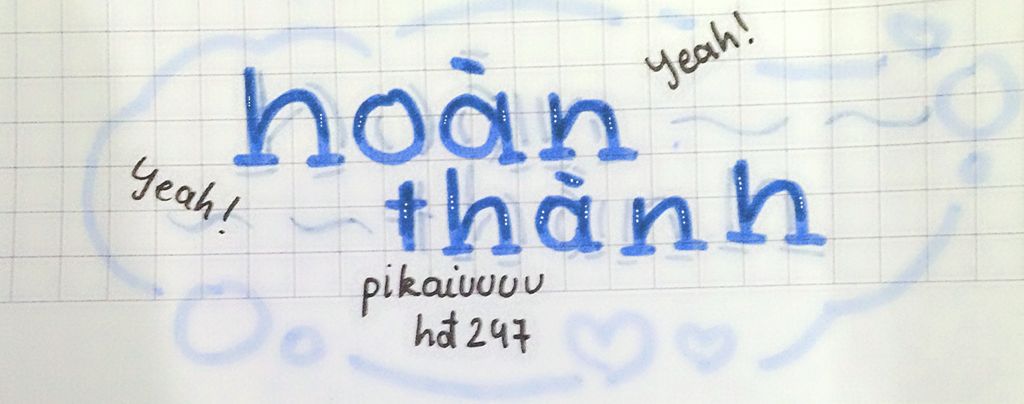 hoàn
Yeah!
Yeah!
thành
pikaiuuuu
hđt 247